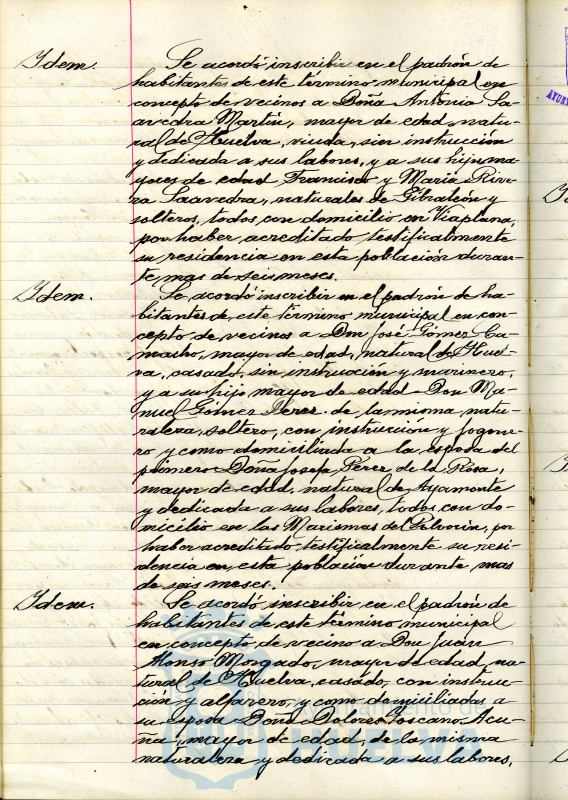 Idem.
Se acordó inscribir en el padrón de
habitantes de este término municipal en
concepto de vecinos a Doña Antonia Sa-
avedra Martín, mayor de edad, natu-
ral de Huelva, viuda, sin instrucción
y dedicada a sus labores, y a sus hijos ma-
yores de edad Francisco y María Rive-
ra Saavedra, naturales de Gibraleón y
solteros, todos con domicilio en Viaplana,
por haber acreditado testificalmente
su residencia en esta población duran-
te mas de seis meses.
Idem.
Se acordó inscribir en el padrón de ha-
bitantes de este término municipal en con-
cepto de vecinos a Don José Gómez Ca-
macho, mayor de edad, natural de Huel-
va, casado, sin instrucción y marinero,
y a su hijo mayor de edad Don Ma-
nuel Gómez Pérez de la misma natu-
raleza, soltero, con instrucción y fogone-
ro y como domiciliada a la esposa del
primero Doña Josefa Pérez de la Rosa,
mayor de edad, natural de Ayamonte
y dedicada a sus labores, todos con do-
micilio en las Marismas del Polvorín, por
haber acreditado testificalmente su resi-
dencia en esta población durante mas
de seis meses.
Idem.
Se acordó inscribir en el padrón de
habitantes de este término municipal
en concepto de vecino a Don Juan
Alonso Morgado, mayor de edad, na-
tural de Huelva, casado, con instruc-
ción y alfarero, y como domiciliadas a
su esposa Doña Dolores Toscano Acu-
ña, mayor de edad, de la misma
naturaleza y dedicada a sus labores,
HUELVA